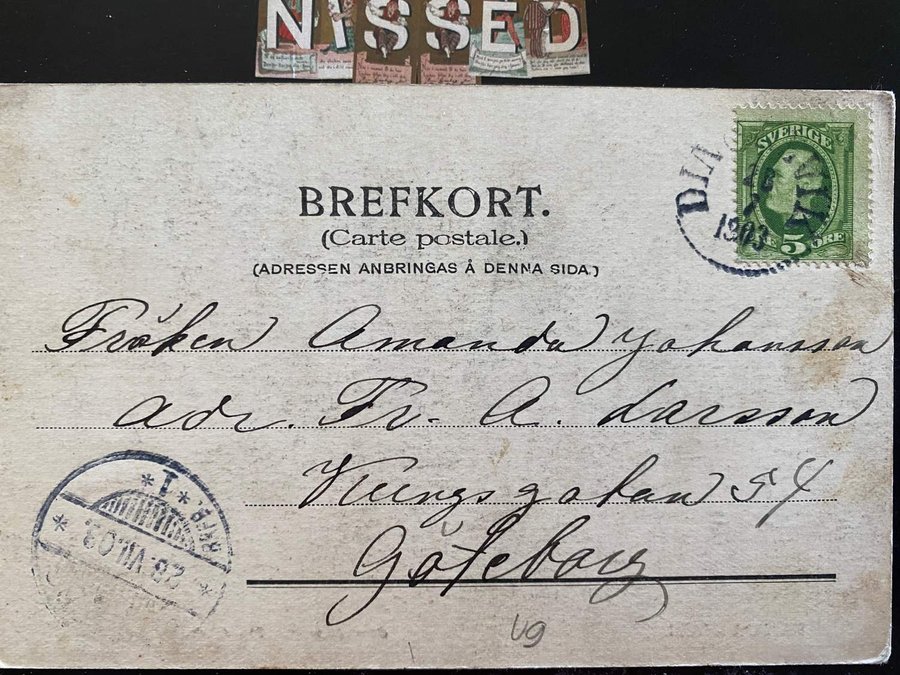 NISSED
BREFKORT.
(Carte postale.)
(ADRESSEN ANBRINGAS Å DENNA SIDA.)
SVERIGE
5 ÖRE
1903
Fröken Amanda Johansson
adr. Fr. A. Larsson
Kungsgatan 54
Göteborg
* 1 *
28.VII.03
UG